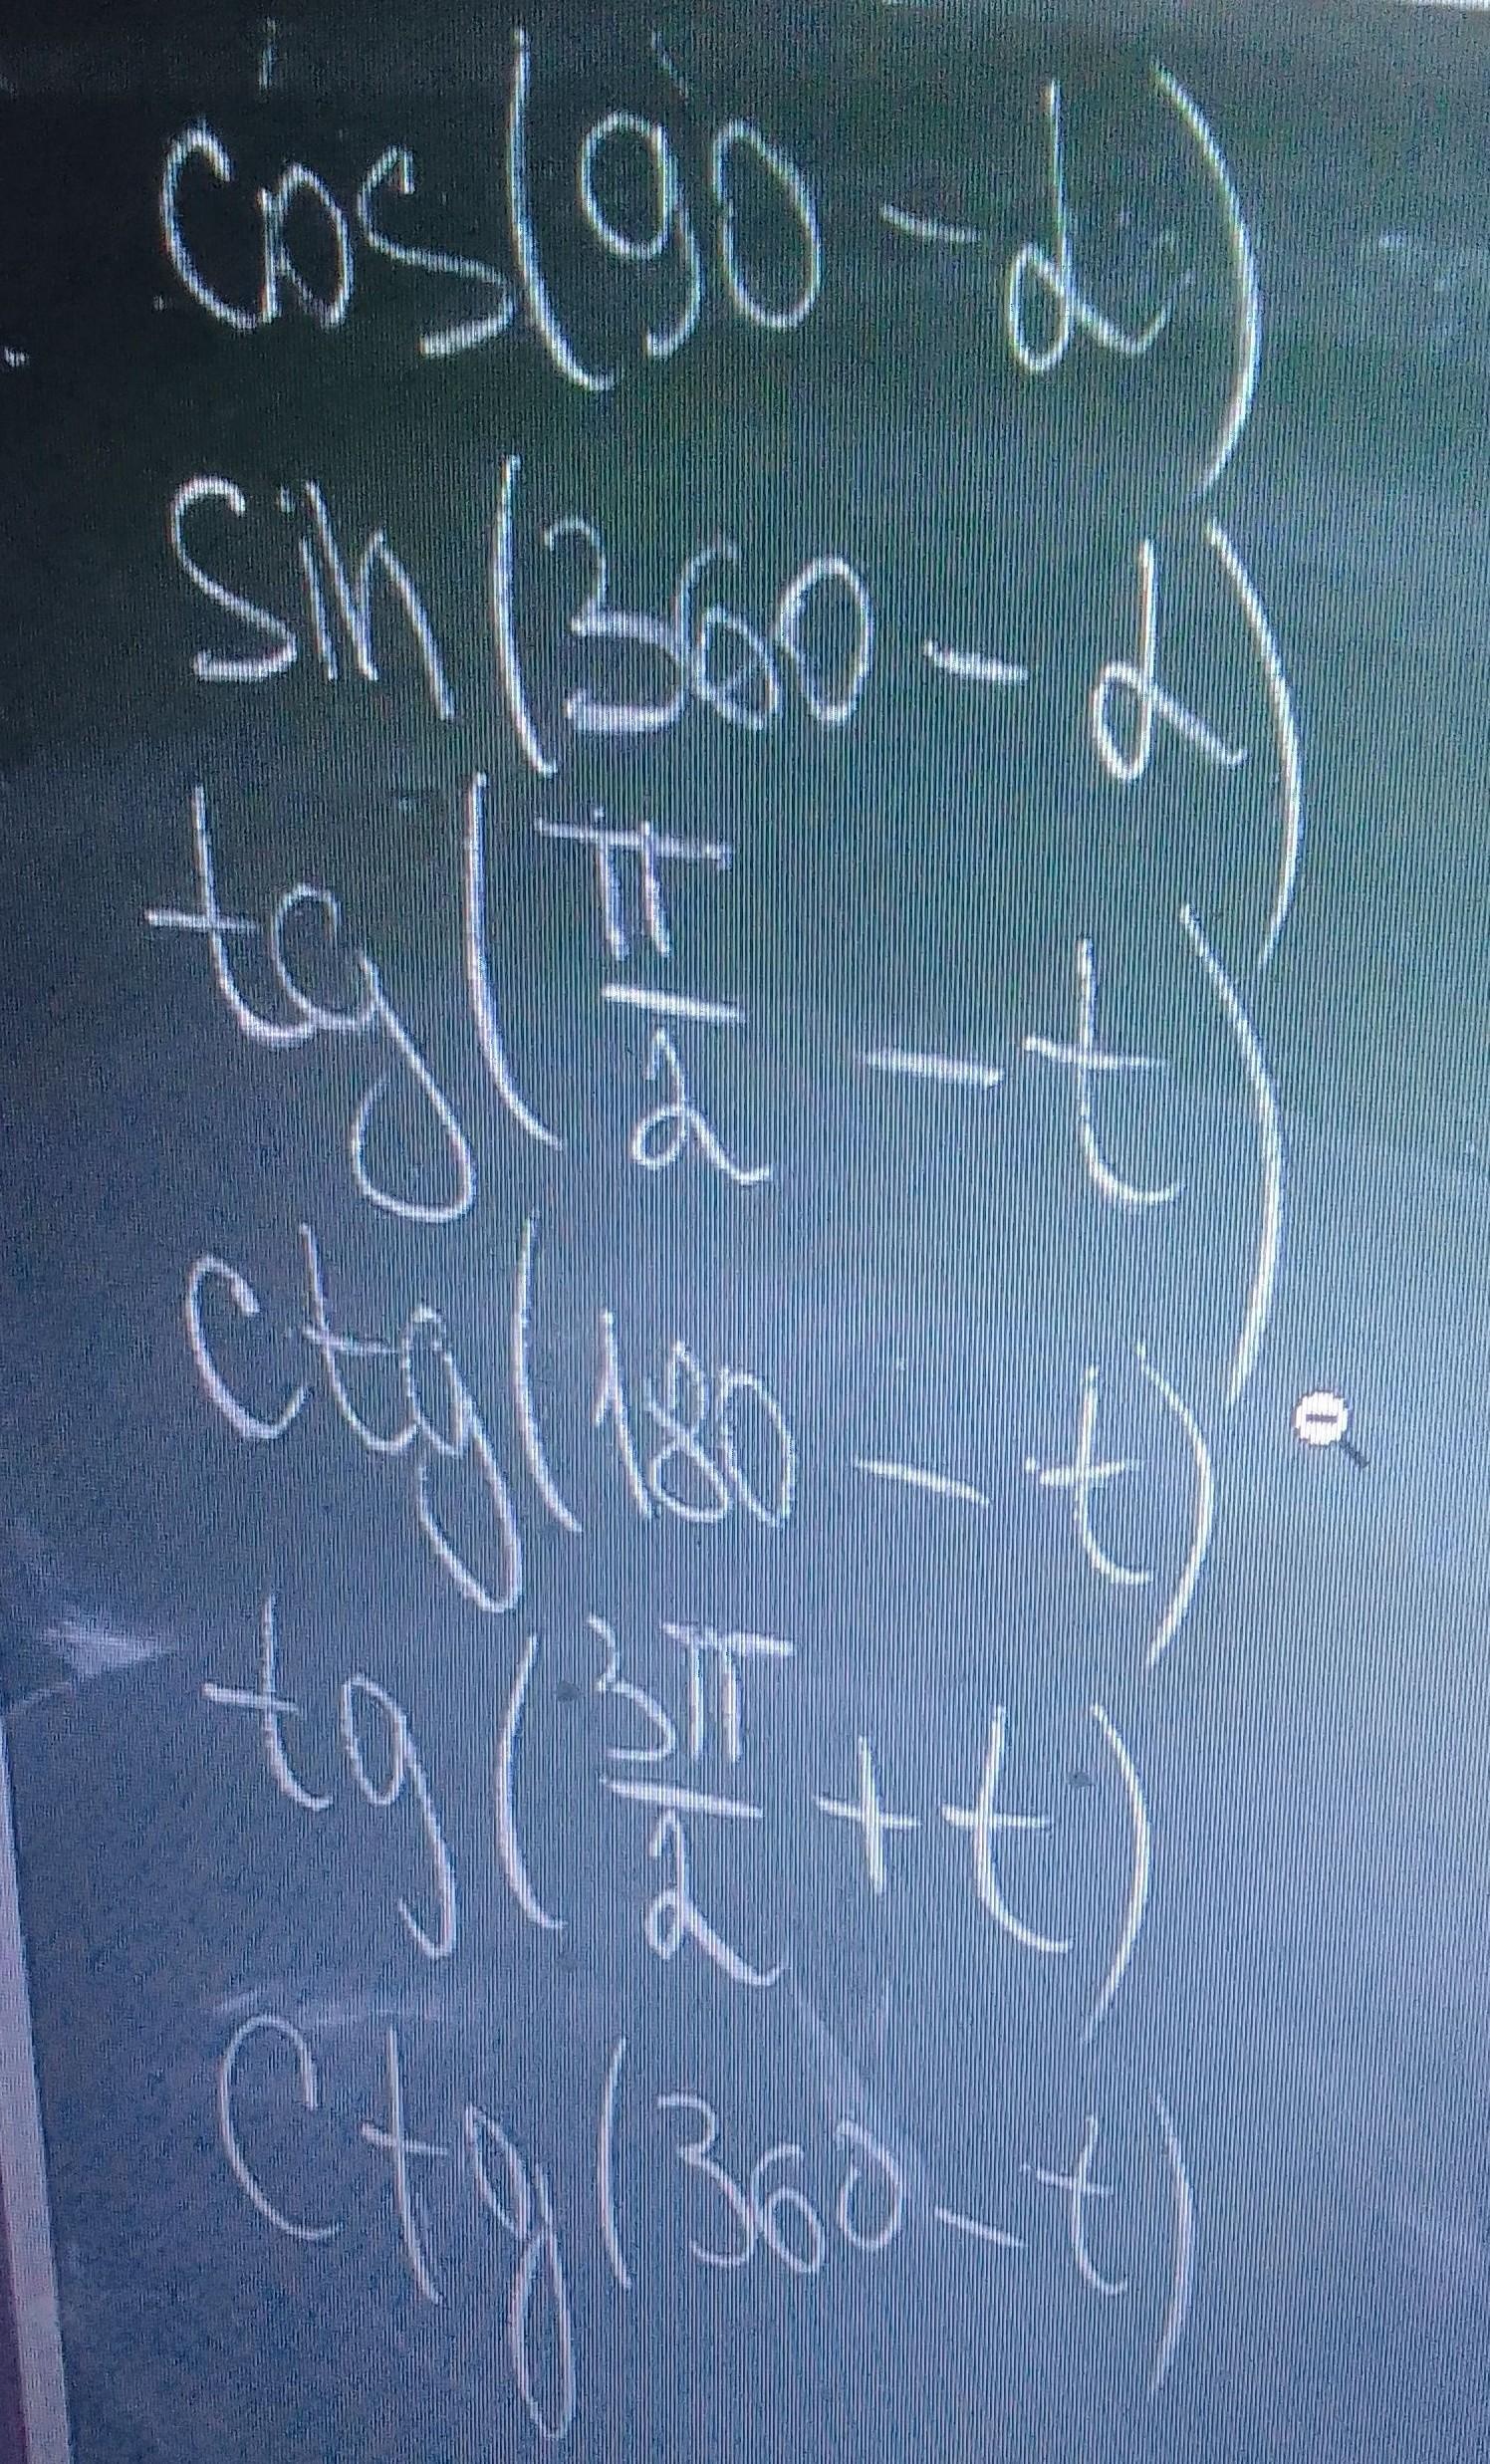 cos(90-α)
sin(360-α)
tg(π/2-t)
ctg(180-t)
tg(3π/2+t)
Ctg(360-t)